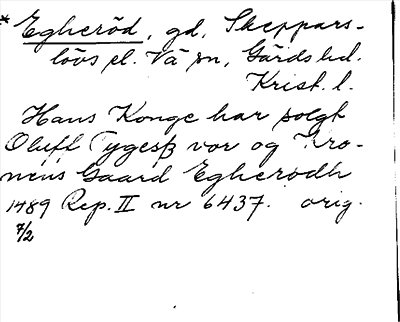 * Egheröd, gd, Skeppars-
lövs sl. Vä sn, Gärds hd.
Krist. l.
Hans Konge har solgt
Oluff Tygesß vor og Kro-
nens Gaard Egherodh
1489 Rep. II nr 6437. orig.
7/2